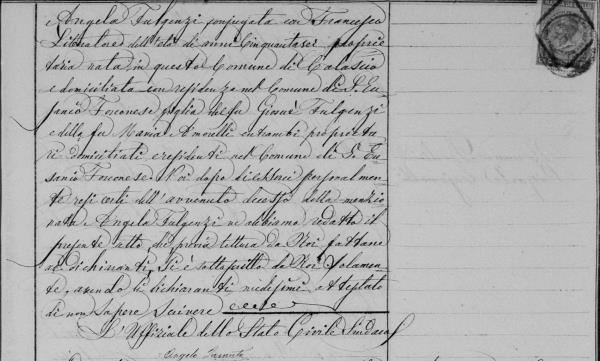 e Angela Fulgenzi conjugata con Francesco
Liberatore dell'età di anni Cinquantasei proprie
taria nata in questo Comune di Calascio
e domiciliata con residenza nel Comune di S. Eu
sanio Forconese figlia del fu Giosuè Fulgenzi
e della fu Maria Amorelli entrambi proprieta
ri domiciliati e residenti nel Comune di S. Eu
sanio Forconese. Noi dopo di esserci personalmen
te resi certi dell'avvenuto decesso della menzio
nata Angela Fulgenzi ne abbiamo redatto il
presente atto, che previa lettura da Noi fattane
ai dichiaranti, si è sottoscritto da Noi solamen
te, avendo li dichiaranti medesimi attestato
di non sapere scrivere
L'Uffiziale dello Stato Civile Sindaco
Angelo